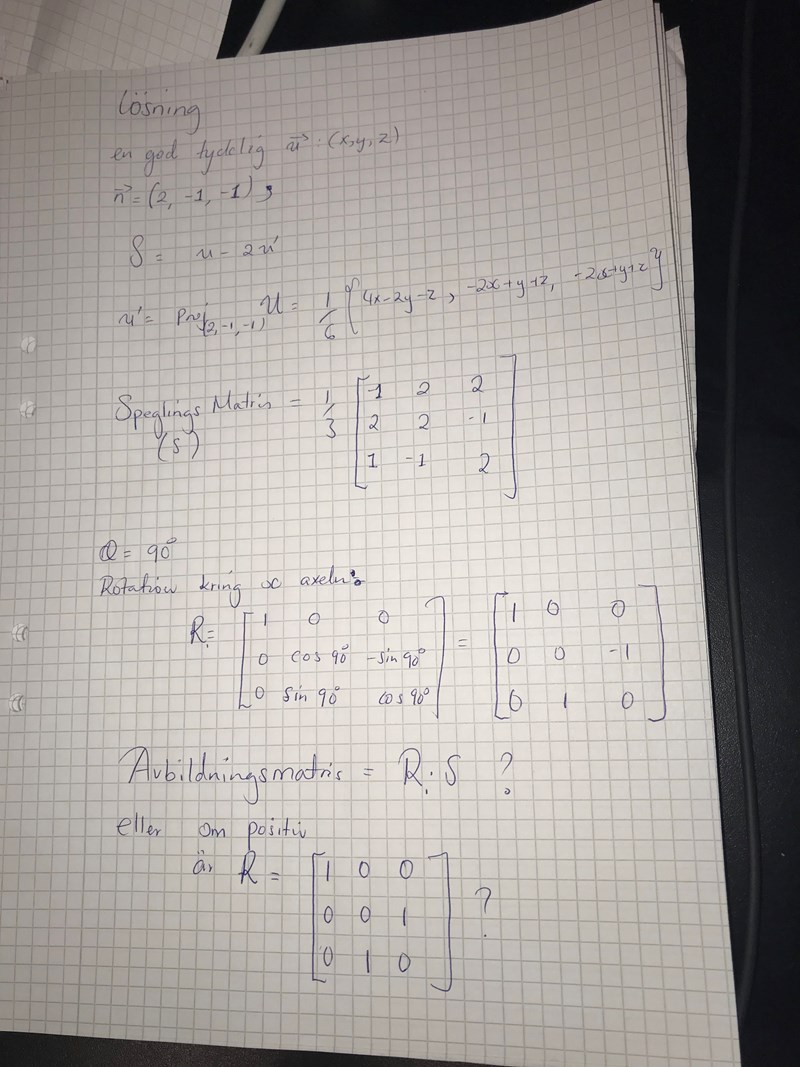 Lösning
en godtydlig u⃗ : (x,y,z)
n⃗ = (2, -1, -1) ;
S = u - 2u'
u' = Proj(2,-1,-1) U = 1/6 { 4x-2y-z , -2x+y+z, -2x+y+z }
Speglings Matris = 1/3 [ -1 2 2
(S) 2 2 -1
1 -1 2 ]
θ = 90°
Rotation kring x axeln:
R = [ 1 0 0 = [ 1 0 0
0 cos 90° -sin 90° 0 0 -1
0 sin 90° cos 90° ] 0 1 0 ]
Avbildningsmatris = R . S ?
eller om positiv
är R = [ 1 0 0
0 0 1 ?
0 1 0 ]